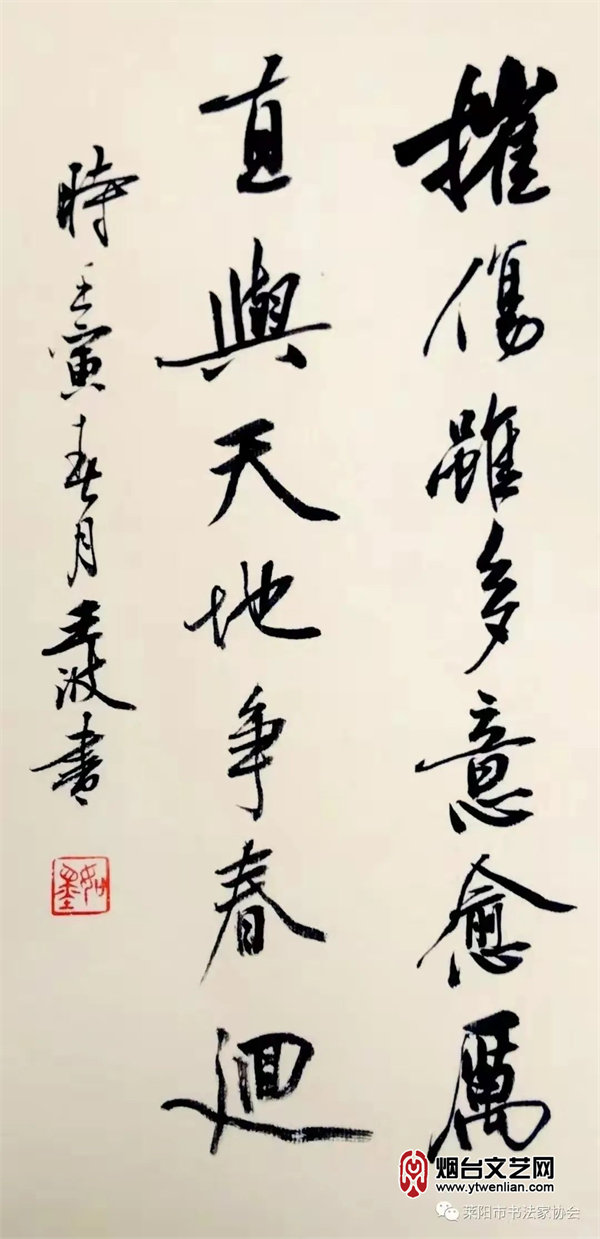 摧傷雖多意愈厲
直與天地争春迴
時壬寅春月王波書
如墨
烟台文艺网
www.ytwenlian.com
莱阳市书法家协会